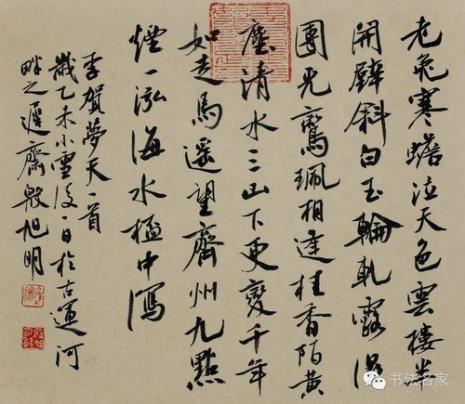 老兔寒蟾泣天色雲樓半
開壁斜白玉輪軋露濕
團光鸞珮相逢桂香陌黃
塵清水三山下更變千年
如走馬遙望齊州九點
煙一泓海水桮中瀉
李賀夢天一首
歲乙未小雪後一日於古運河
畔之遲齋殷旭明
书法名家